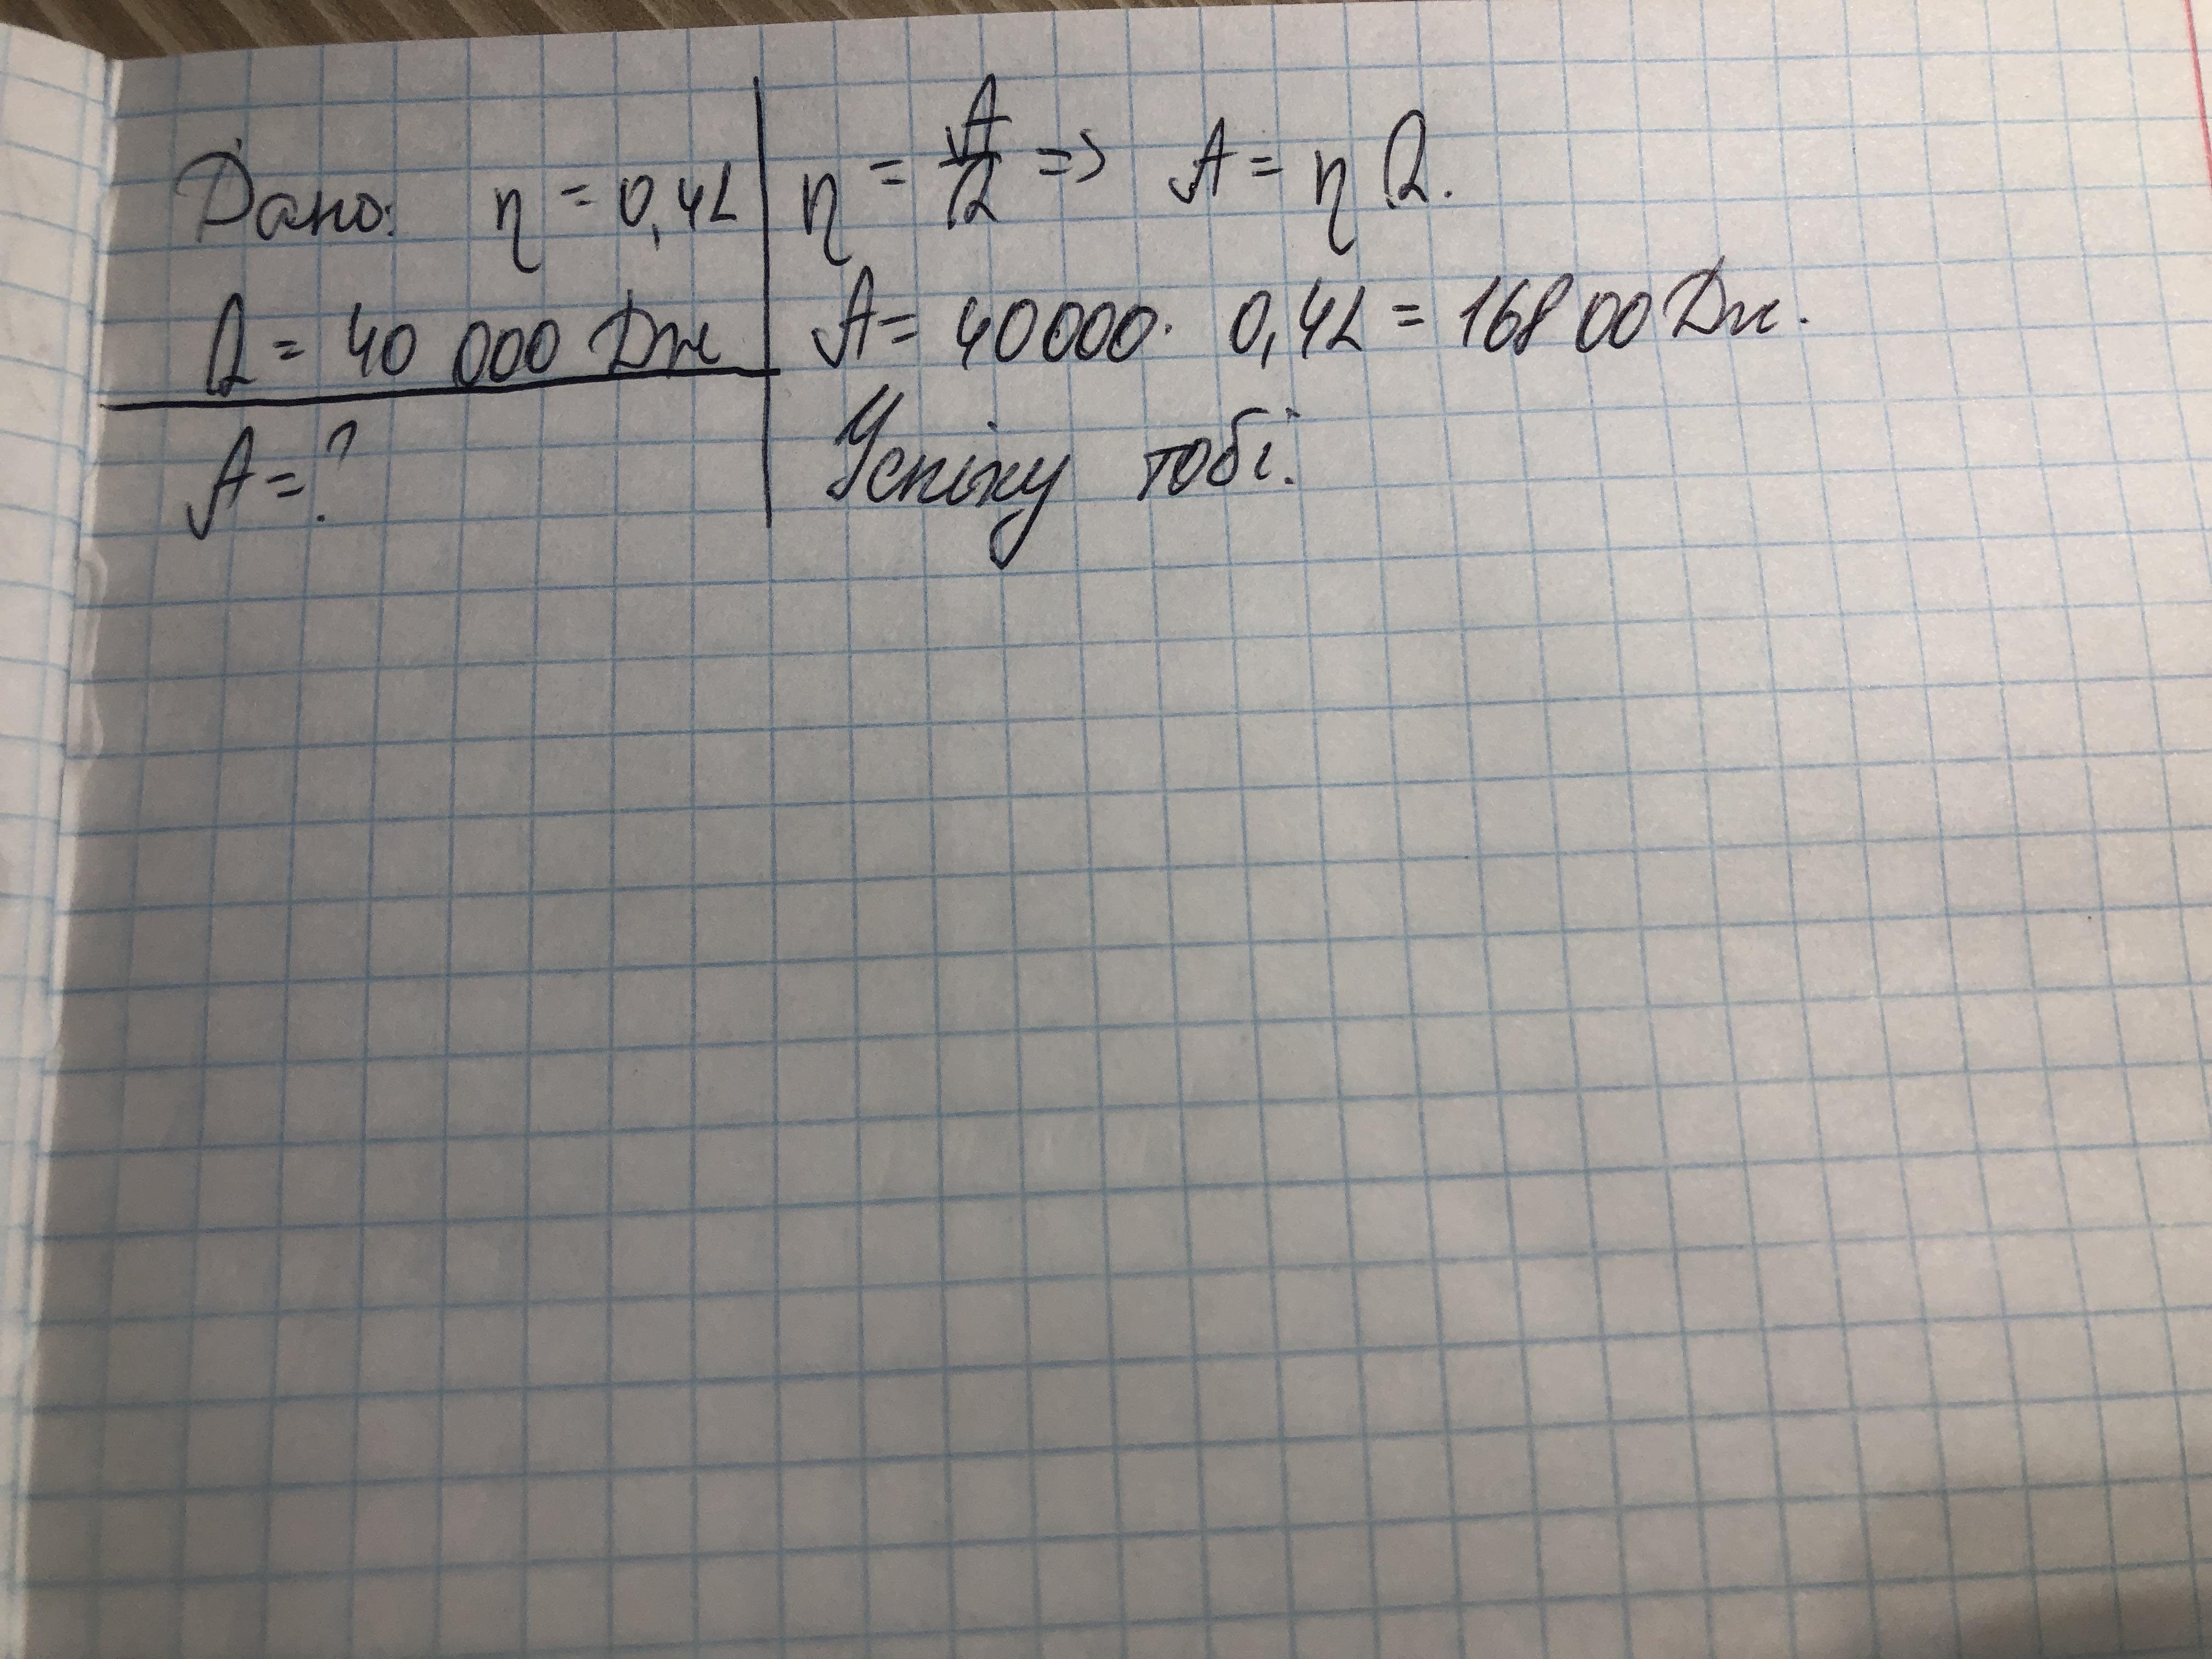 Дано: η = 0,42
Q = 40 000 Дж
A = ?
η = A/Q => A = η Q.
A = 40000 · 0,42 = 16800 Дж.
Успіху тобі.